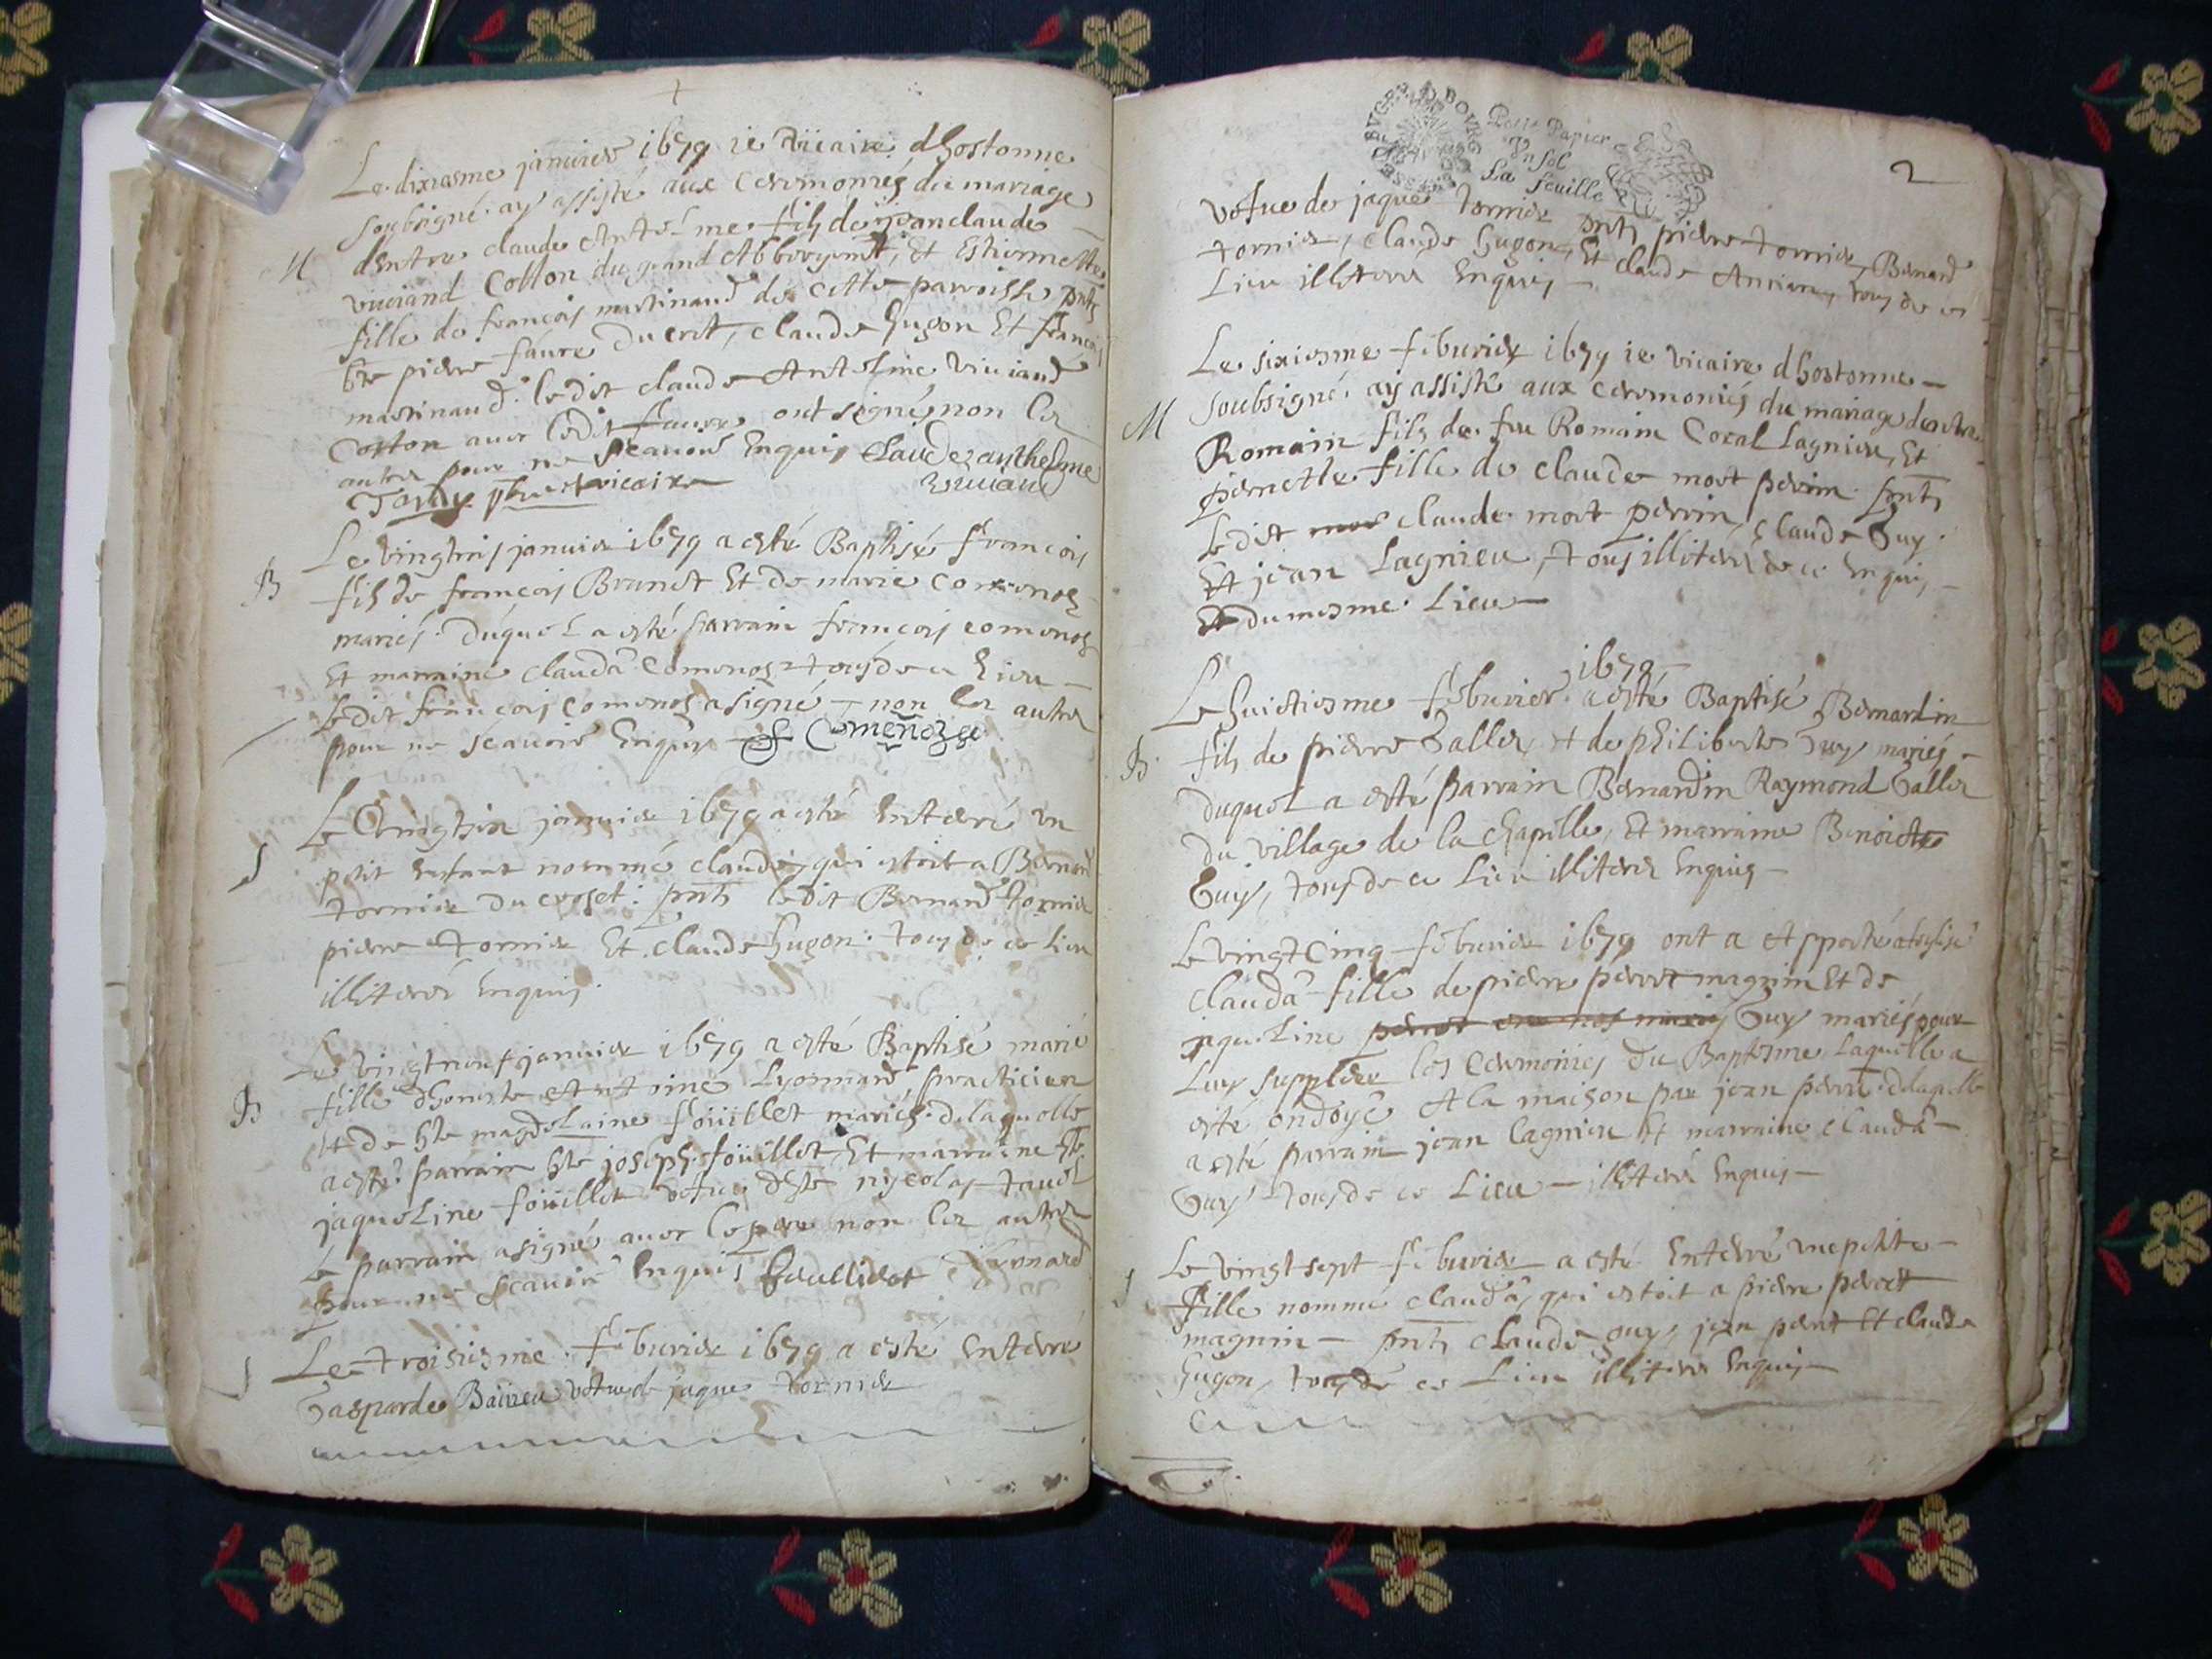 Le dixiesme januier 1679 ie vicaire dhostonne
soubsigné ay assisté aux ceremoniés du mariage
M
dentre claude Antelme fils de jeanclaude
viuiand Cotton du grand Abbergement, Et Estiennette
fille de francois martinand de cette parroisse pnts
hte pierre faure Ducrot, claude hugon Et francois
martinand. ledit claude Antelme viuiand
Cotton auec ledit faure ont signé, non les
autres pour ne scauoir Enquis Claude anthelme
viuiand
vicaire
Le vingttrois januier 1679 a esté Baptisé francois
B
fils de francois Brunet Et de marie Comenos
mariés. duquel a esté parrain francois comenos
Et marraine clauda Comenos tous de ce Lieu
ledit francois comenos a signé non les autres
pour ne scauoir Enquis F Comenoz
Le vingtsix januier 1679 a esté Enterré vn
S
petit Enfant nommé claude, qui estoit a Bernard
tornier du croset: pnts ledit Bernard tornier
pierre tornier Et claude hugon. tous de ce Lieu
illiterés Enquis.
Le vingtneuf januier 1679 a esté Baptisé marie
B
fille dhoneste Antoine Lyonnard, practicien
Et de hte magdelaine fouillet mariés. delaquelle
a esté parrain hte joseph fouillet, Et marraine hte
jaqueline fouillet vefue dhte nycolas tauel
Le parrain a signé auec le pere non les autres
pour ne scauoir Enquis fouilliet Lionnard
Le troisiesme feburier 1679 a esté Enterré
S
Gasparde Baisieu vefue de jaque tornier
BOURG
Petit Papier
Vn Sol
La feuille
2
vefue de jaque tornier pnts pierre tornier, Bernard
tornier, claude hugon, Et claude Ancian, tous de ce
Lieu illiterés Enquis
Le sixiesme feburier 1679 ie vicaire dhostonne
soubsigné ay assisté aux ceremoniés du mariage dentre
M
Romain fils de feu Romain Coral Lagnieu, Et
pernette fille de claude mort perrin pnts
ledit claude mort perrin, claude Guy
Et jean Lagnieu, tous illiterés de ce Enquis
Et du mesme Lieu
1679
Le huictiesme feburier a esté Baptisé Bernardin
B
fils de pierre Galler, Et de philiberte Guy mariés
duquel a esté parrain Bernardin Raymond Galler
du village de la chapelle, Et marraine Benoicte
Guy, tous de ce Lieu illiterés Enquis
Le vingtcinq feburier 1679 ont a Apporté aleglise
clauda fille de pierre perret magnin Et de
jaqueline Guy mariés pour
Luy suppléer les ceremoniés du Baptesme laquelle a
esté ondoyé A la maison par jean perret. delaquelle
a esté parrain jean Lagnieu Et marraine clauda
Guy tous de ce Lieu illiterés Enquis
Le vingtsept feburier a esté Enterré vne petite
S
fille nommé clauda, qui estoit a pierre perret
magnin pnts claude guy, jean perret Et claude
hugon, tous de ce Lieu illiterés Enquis